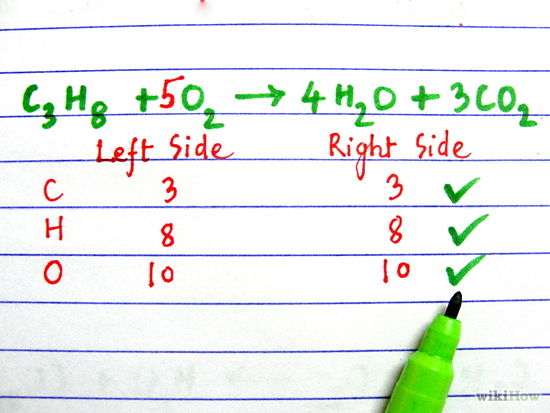 C₃H₈ + 5O₂ → 4H₂O + 3CO₂
Left Side Right Side
C 3 3 ✓
H 8 8 ✓
O 10 10 ✓
wikiHow